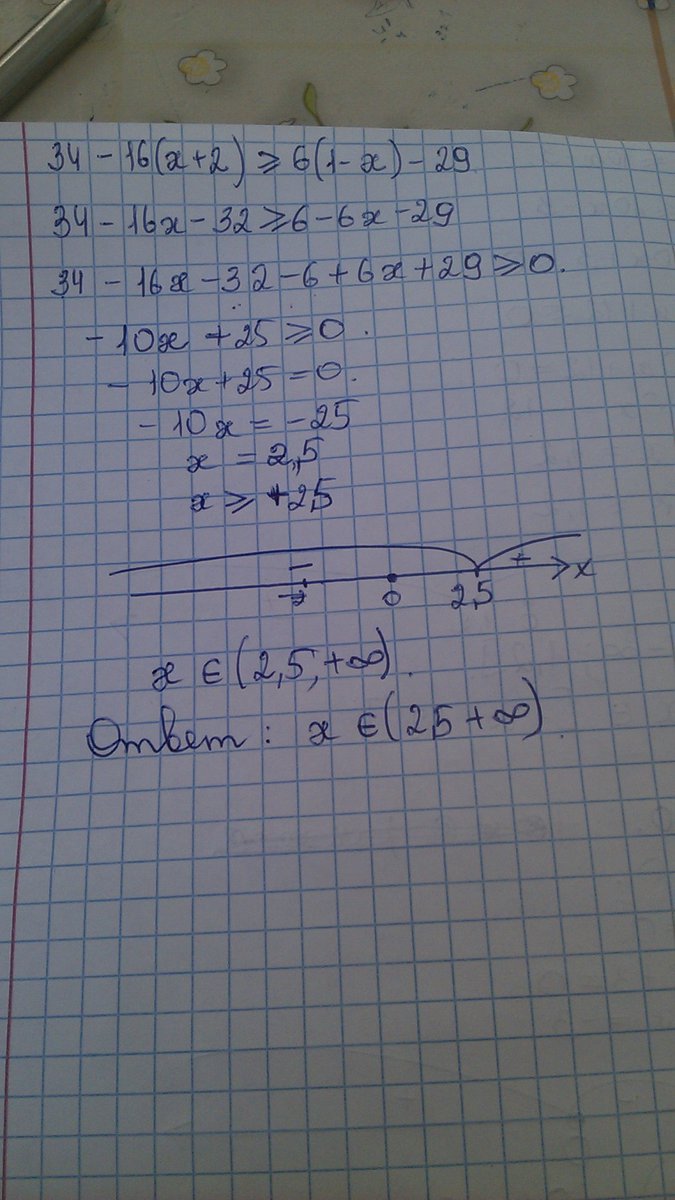 34 - 16(x+2) ⩾ 6(1-x) - 29
34 - 16x - 32 ⩾ 6 - 6x - 29
34 - 16x - 32 - 6 + 6x + 29 ⩾ 0.
- 10x + 25 ⩾ 0.
- 10x + 25 = 0.
- 10x = - 25
x = 2,5
x ⩾ +2,5
- + x
0 2,5
x ∈ (2,5, +∞).
Ответ: x ∈ (2,5 +∞).